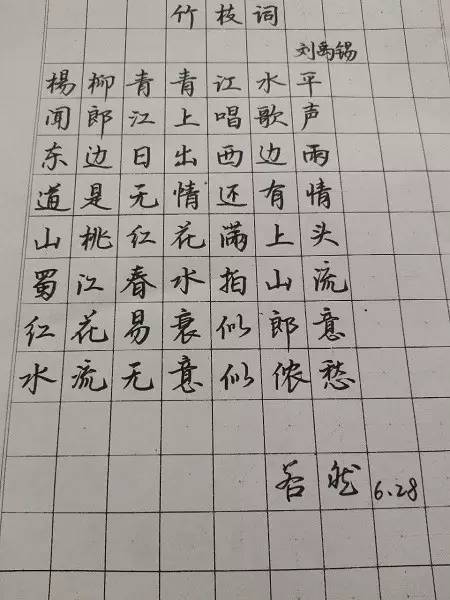 竹枝词
刘禹锡
楊柳青青江水平
闻郎江上唱歌声
东边日出西边雨
道是无情还有情
山桃红花满上头
蜀江春水拍山流
红花易衰似郎意
水流无意似侬愁
若然 6.28